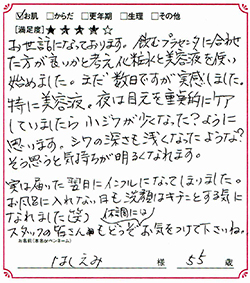 ☑お肌 □からだ □更年期 □生理 □その他
[満足度] ★★★★☆
お世話になっております。飲むプラセンタに合わせ
た方が良いかと考え化粧水と美容液を使い
始めました。まだ数日ですが実感しました。
特に美容液。夜は目元を重要的にケア
していましたら小ジワが少くなった?ように
思います。シワの深さも浅くなったような?
そう思うと気持ちが明るくなれます。
実は届いた翌日にインフルになってしまいました。
お風呂に入れない日も洗顔はキチンとする気に
なれました(笑)
スタッフの皆さんもどうぞ(体調に)お気をつけて下さいね。
お名前(本名orペンネーム)
はしえみ 様 55 歳